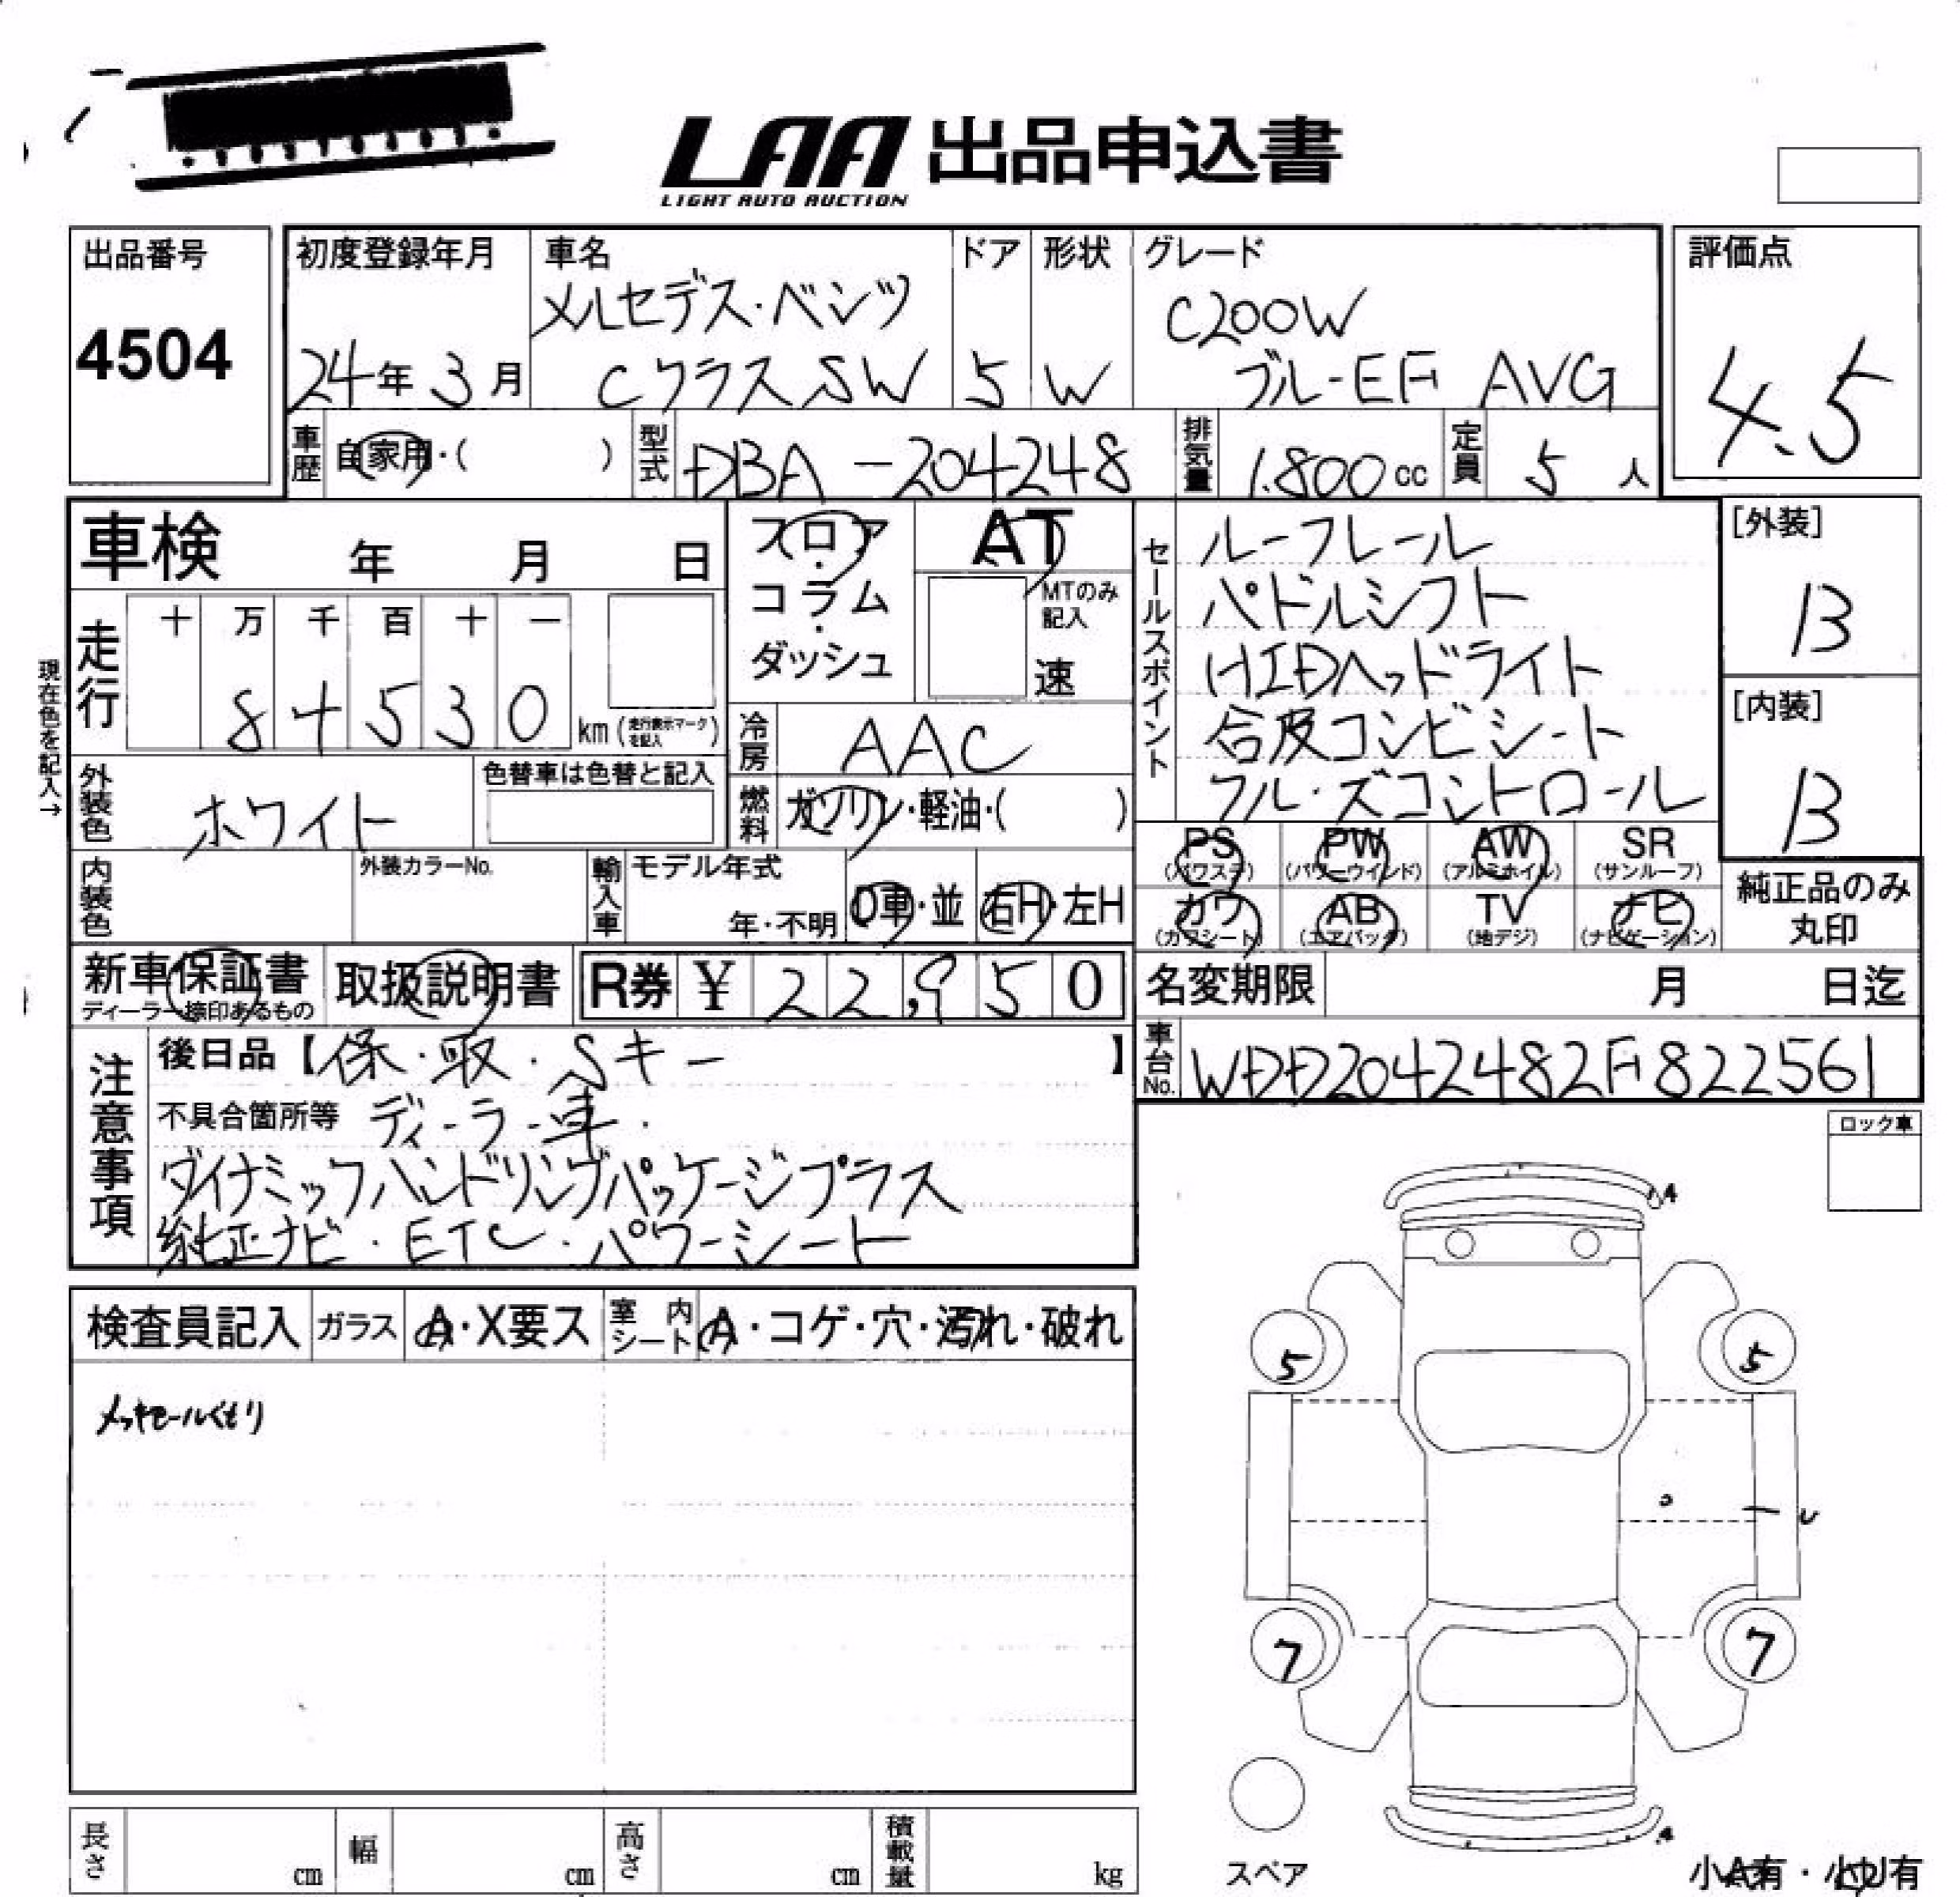 LAA 出品申込書
LIGHT AUTO AUCTION
出品番号
4504
初度登録年月
24年 3月
車名
メルセデス・ベンツ
CクラスSW
ドア
5
形状
W
グレード
C200W
ブル-EF AVG
評価点
4.5
車歴
自家用・( )
型式
DBA-204248
排気量
1.800cc
定員
5人
車検 年 月 日
フロア
・
コラム
・
ダッシュ
AT
MTのみ
記入
速
セールスポイント
ルーフレール
パドルシフト
HIDヘッドライト
合皮コンビシート
クル・ズコントロール
[外装]
B
[内装]
B
現在色を記入→
走行
十 万 千 百 十 一
84530
km(走行表示マークを記入)
冷房
AAC
外装色
ホワイト
色替車は色替と記入
燃料
ガソリン・軽油・( )
内装色
外装カラーNo.
輸入車
モデル年式
年・不明
D車・並
右H・左H
PS
(パワステ)
PW
(パワーウインド)
AW
(アルミホイル)
SR
(サンルーフ)
カワ
(カワシート)
AB
(エアバッグ)
TV
(地デジ)
ナビ
(ナビゲーション)
純正品のみ
丸印
新車保証書
ディーラー捺印あるもの
取扱説明書
R券 ¥ 22,950
名変期限 月 日迄
車台No.
WDD2042482F822561
注意事項
後日品【保・取・Sキー 】
不具合箇所等 ディ-ラ-車.
ダイナミックハンドリングパッケージプラス
純正ナビ・ETC・パワーシート
ロック車
A
検査員記入
ガラス
A・X要ス
室内
シート
A・コゲ・穴・汚れ・破れ
メッキモールくもり
5
5
U
7
7
A
スペア
小A有・小U有
長さ
cm
幅
cm
高さ
cm
積載量
kg